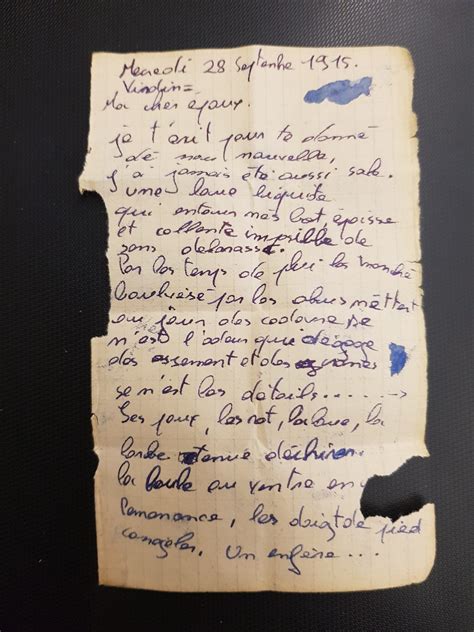 Mercredi 28 Septenbre 1915.
Ma cher epoux.
je t'ecrit pour te donné
dé nouvelle,
j'ai jamais été aussi sale.
d'une boue liquide
qui entoure mes bot, épaisse
et collente impssible de
sans debarassé.
Par les temps de plui les tranché
boulversé par les obus mettent
au jour des cadavre se
n'est l'odeur qui dégage
des ossement et des
se n'est les détails..... →
Ses poux, les rat, la boue, la
barbe tenue déchirer
la boule au ventre en
permanance, les doigt de pied
congeler. Un enfère...